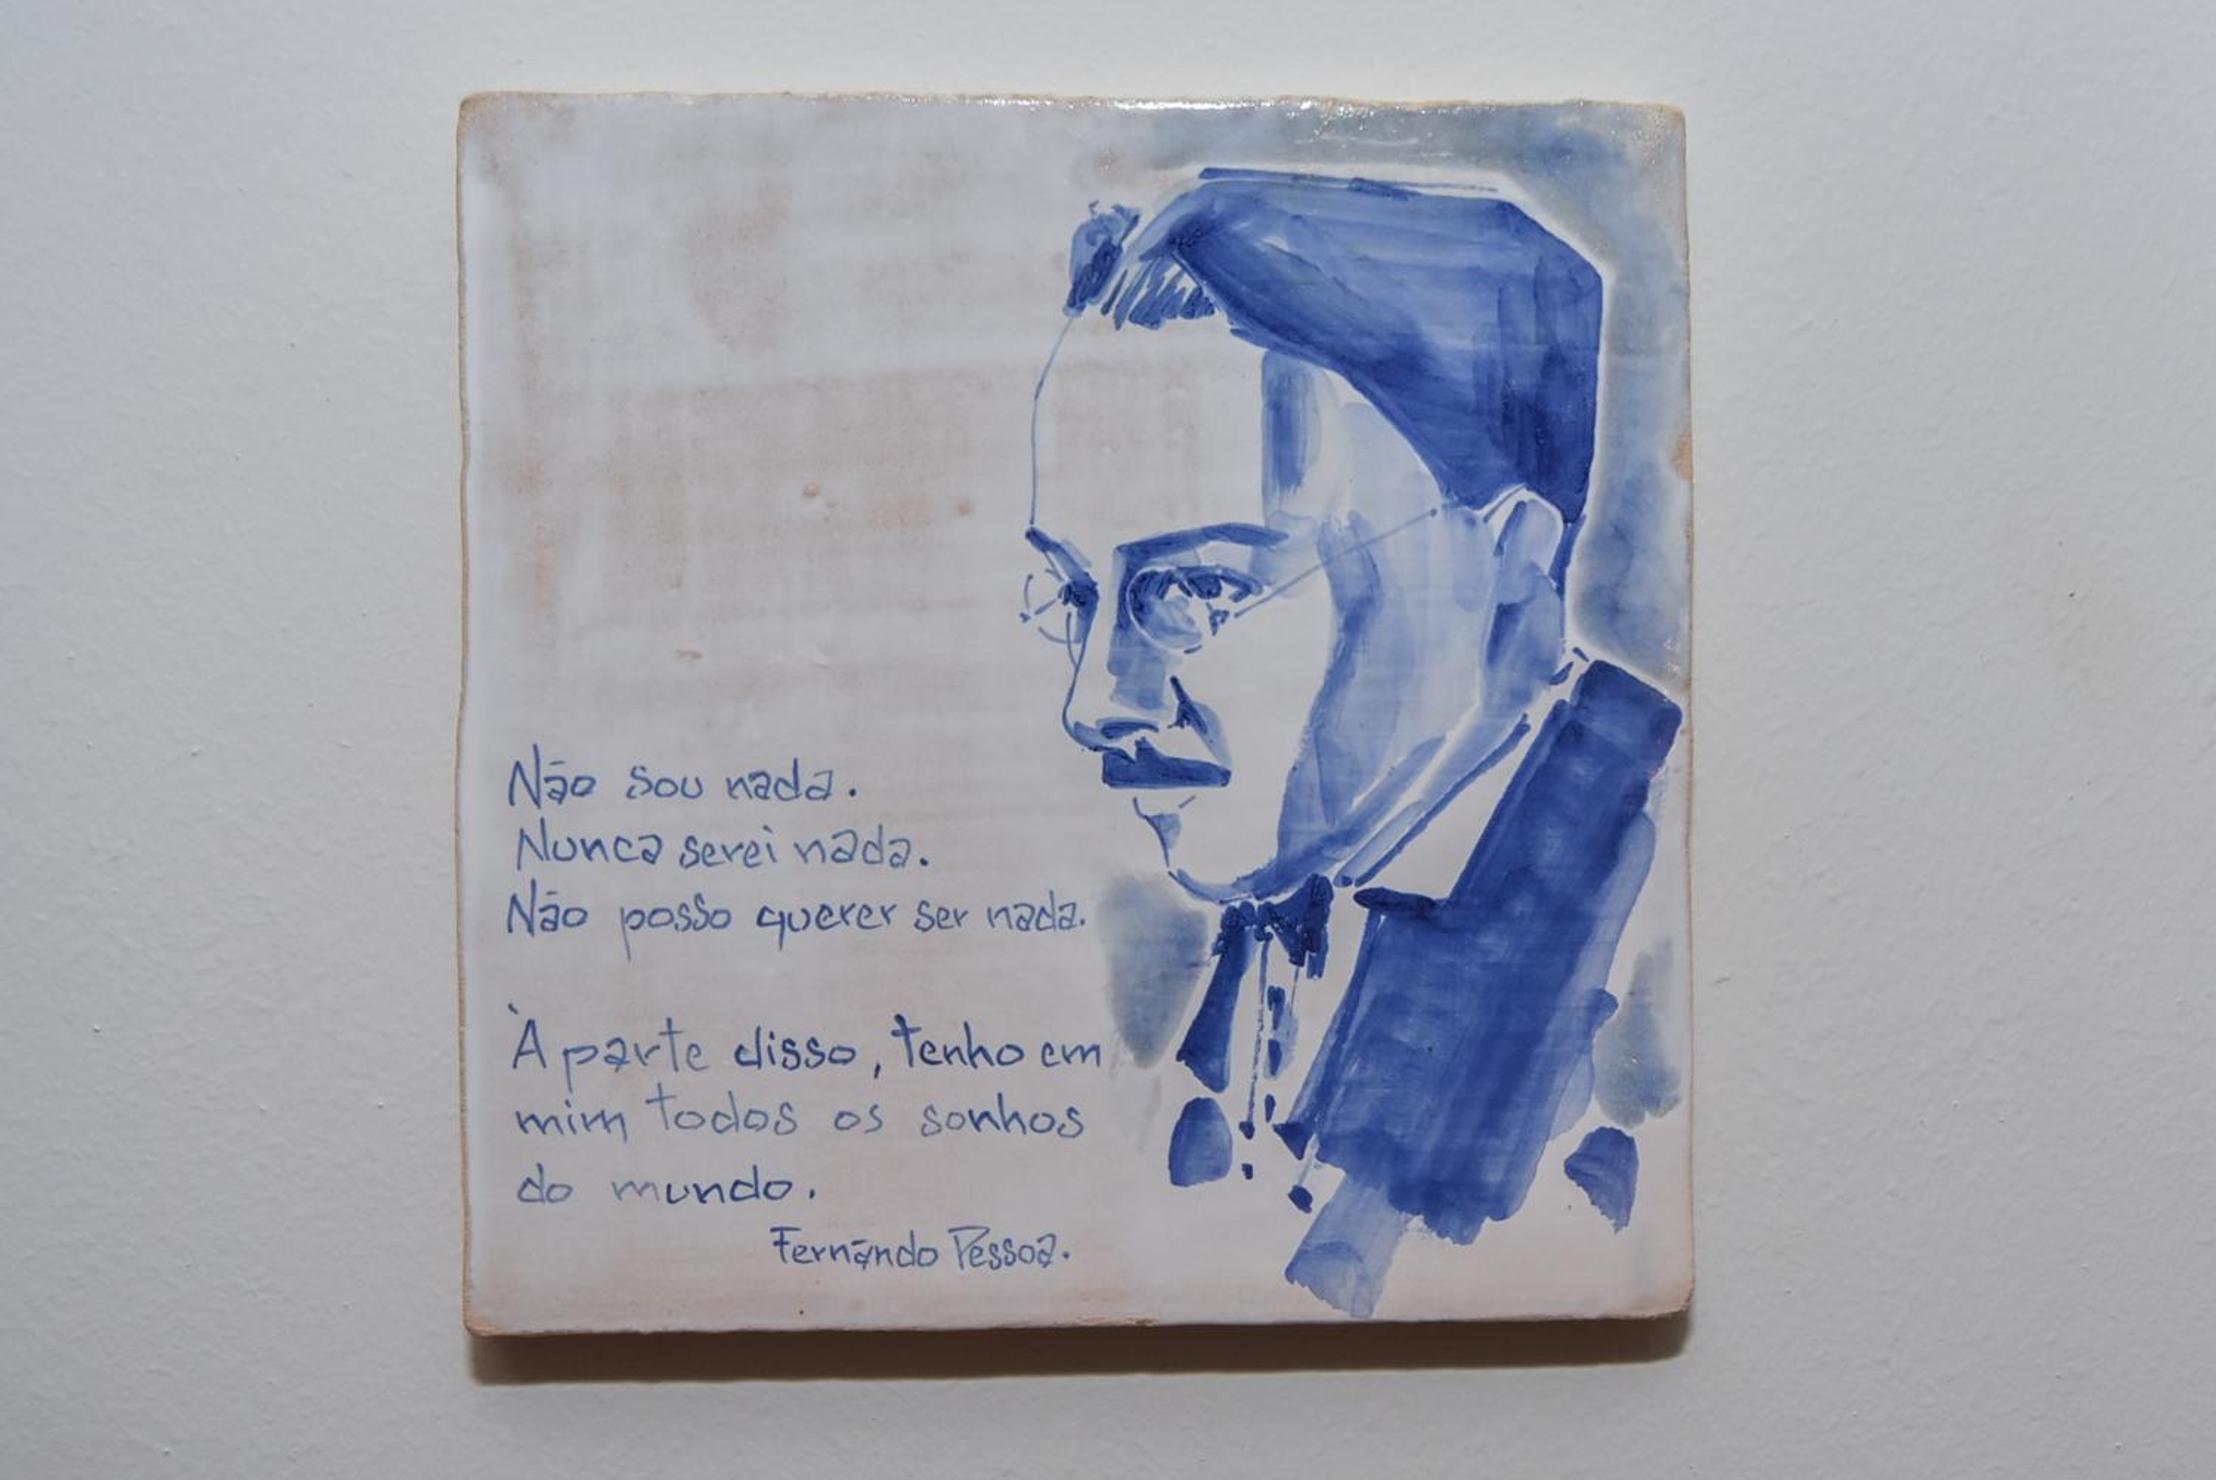 Não sou nada.
Nunca serei nada.
Não posso querer ser nada.
À parte disso, tenho em
mim todos os sonhos
do mundo.
Fernando Pessoa.